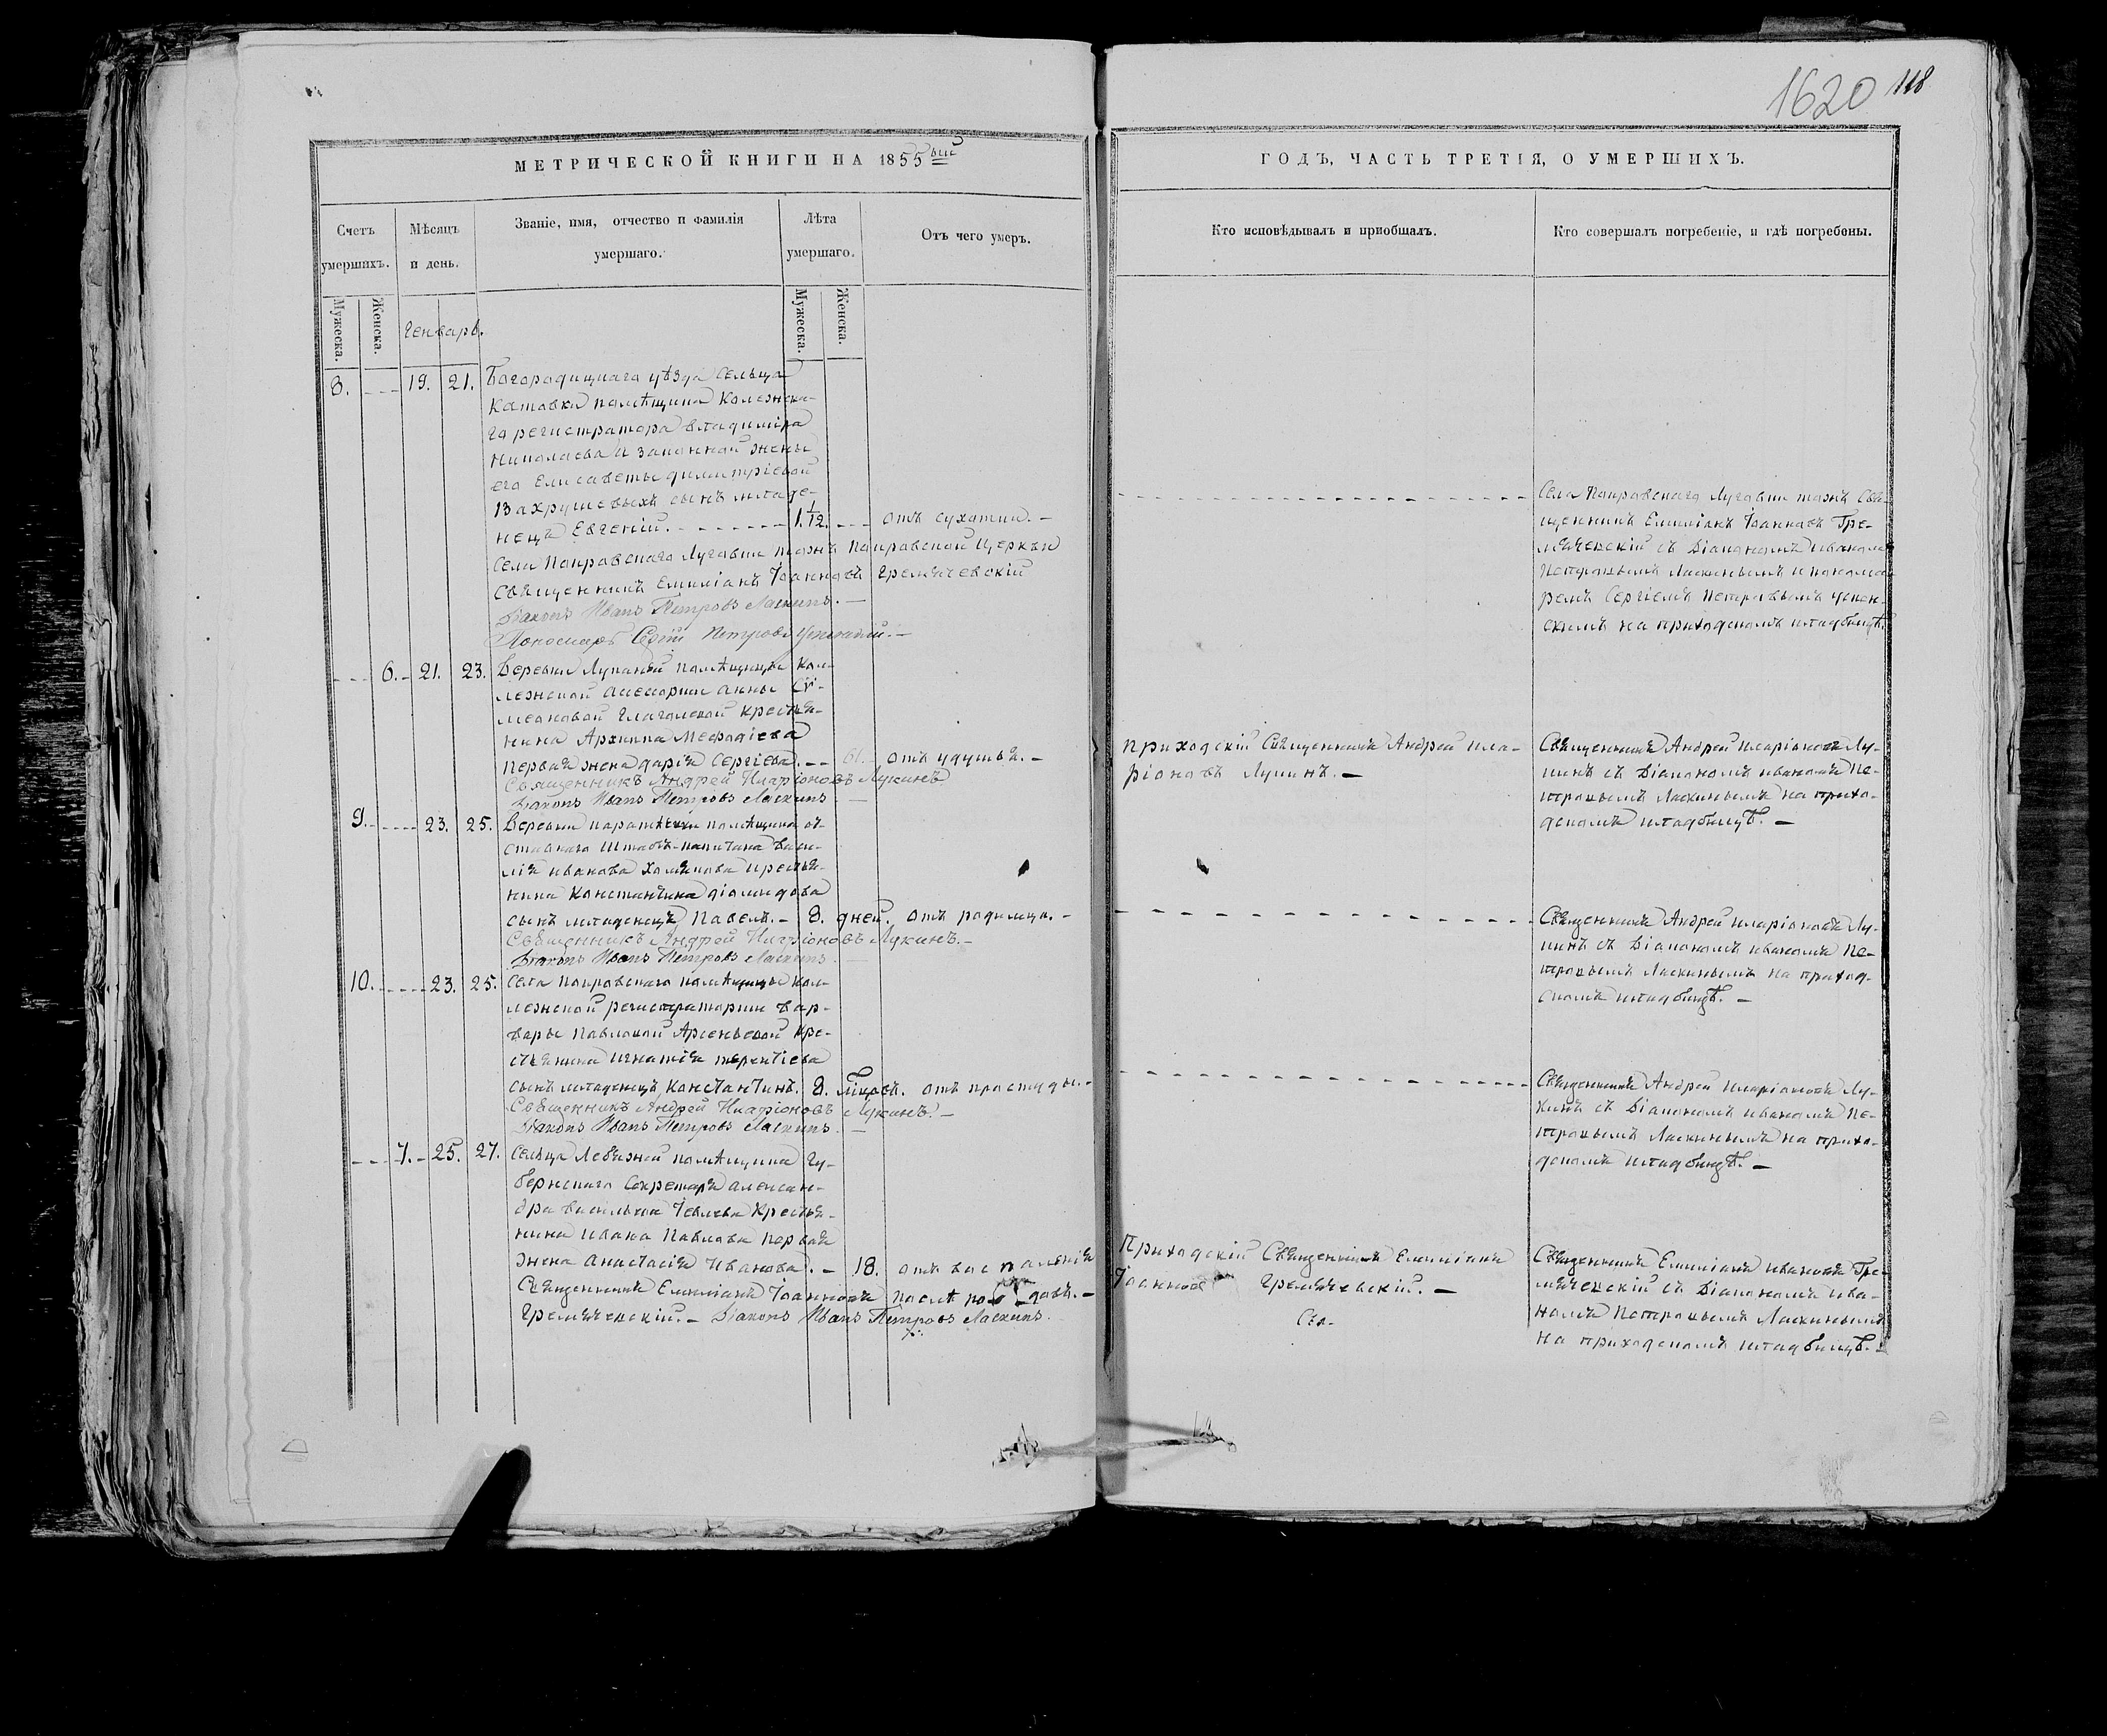 1620 118
МЕТРИЧЕСКОЙ КНИГИ НА 1855ый
ГОДЪ, ЧАСТЬ ТРЕТІЯ, О УМЕРШИХЪ.
Счетъ умершихъ.
Мѣсяцъ и день.
Званіе, имя, отчество и фамилія умершаго.
Лѣта умершаго.
Отъ чего умеръ.
Кто исповѣдывалъ и пріобщалъ.
Кто совершалъ погребеніе, и гдѣ погребены.
Мужеска.
Женска.
Генварь.
Мужеска.
Женска.
8. 19. 21. Богородицкаго уѣзда сельца
Катовки помѣщика Колежска-
го регистратора Владиміра
Николаева и законной жены
его Елисаветы Димитріевой
Вахрушевыхъ сынъ младе-
нецъ Евгеній. 1. 1/12. отъ сухотки.
Села Покровскаго Луговки тожъ Покровской Церкви
Священникъ Емиліанъ Іоанновъ Гремячевскій
Діаконъ Иванъ Петровъ Ласкинъ.
Пономарь Сергій Петровъ Успенскій.
Села Покровскаго Луговки тожъ Свя-
щенникъ Емиліанъ Іоанновъ Гре-
мячевскій съ Діакономъ Иваномъ
Петровымъ Ласкинымъ и понома-
ремъ Сергіемъ Петровымъ Успен-
скимъ на приходскомъ кладбищѣ.
6. 21. 23. Деревни помѣщицы Кол-
лежской Асессорши Анны Си-
меоновой Глаголевой крестья-
нина Архиппа Мефодіева
первая жена Дарія Сергіева. 61. отъ удушья.
Священникъ Андрей Иларіоновъ Лукинъ
Діаконъ Иванъ Петровъ Ласкинъ
Приходскій Священникъ Андрей Ила-
ріоновъ Лукинъ.
Священникъ Андрей Иларіоновъ Лу-
кинъ съ Діакономъ Иваномъ Пе-
тровымъ Ласкинымъ на прихо-
дскомъ кладбищѣ.
9. 23. 25. Деревни помѣщика от-
ставнаго Штабсъ-капитана Васи-
лія Иванова Хомякова крестья-
нина Константина Діомидова
сынъ младенецъ Павелъ. 8. дней. отъ родимца.
Священникъ Андрей Иларіоновъ Лукинъ.
Діаконъ Иванъ Петровъ Ласкинъ
Священникъ Андрей Иларіоновъ Лу-
кинъ съ Діакономъ Иваномъ Пе-
тровымъ Ласкинымъ на приход-
скомъ кладбищѣ.
10. 23. 25. Села Покровскаго помѣщицы Кол-
лежской регистраторши Вар-
вары Павловой Арсеньевой кре-
стьянина Игнатія Терентіева
сынъ младенецъ Константинъ. 8. отъ простуды.
Священникъ Андрей Иларіоновъ Лукинъ.
Діаконъ Иванъ Петровъ Ласкинъ.
Священникъ Андрей Иларіоновъ Лу-
кинъ съ Діакономъ Иваномъ Пе-
тровымъ Ласкинымъ на прихо-
дскомъ кладбищѣ.
7. 25. 27. Сельца Лебяжей помѣщика Гу-
бернскаго Секретаря Алексан-
дра Васильева крестья-
нина Ивана Павлова первая
жена Анастасія Иванова. 18. отъ воспаленія
Священникъ Емиліанъ Іоанновъ послѣ родовъ.
Гремячевскій. Діаконъ Иванъ Петровъ Ласкинъ.
Приходскій Священникъ Емиліанъ
Іоанновъ Гремячевскій.
Священникъ Емиліанъ Ивановъ Гре-
мячевскій съ Діакономъ Ива-
номъ Петровымъ Ласкинымъ
на приходскомъ кладбищѣ.